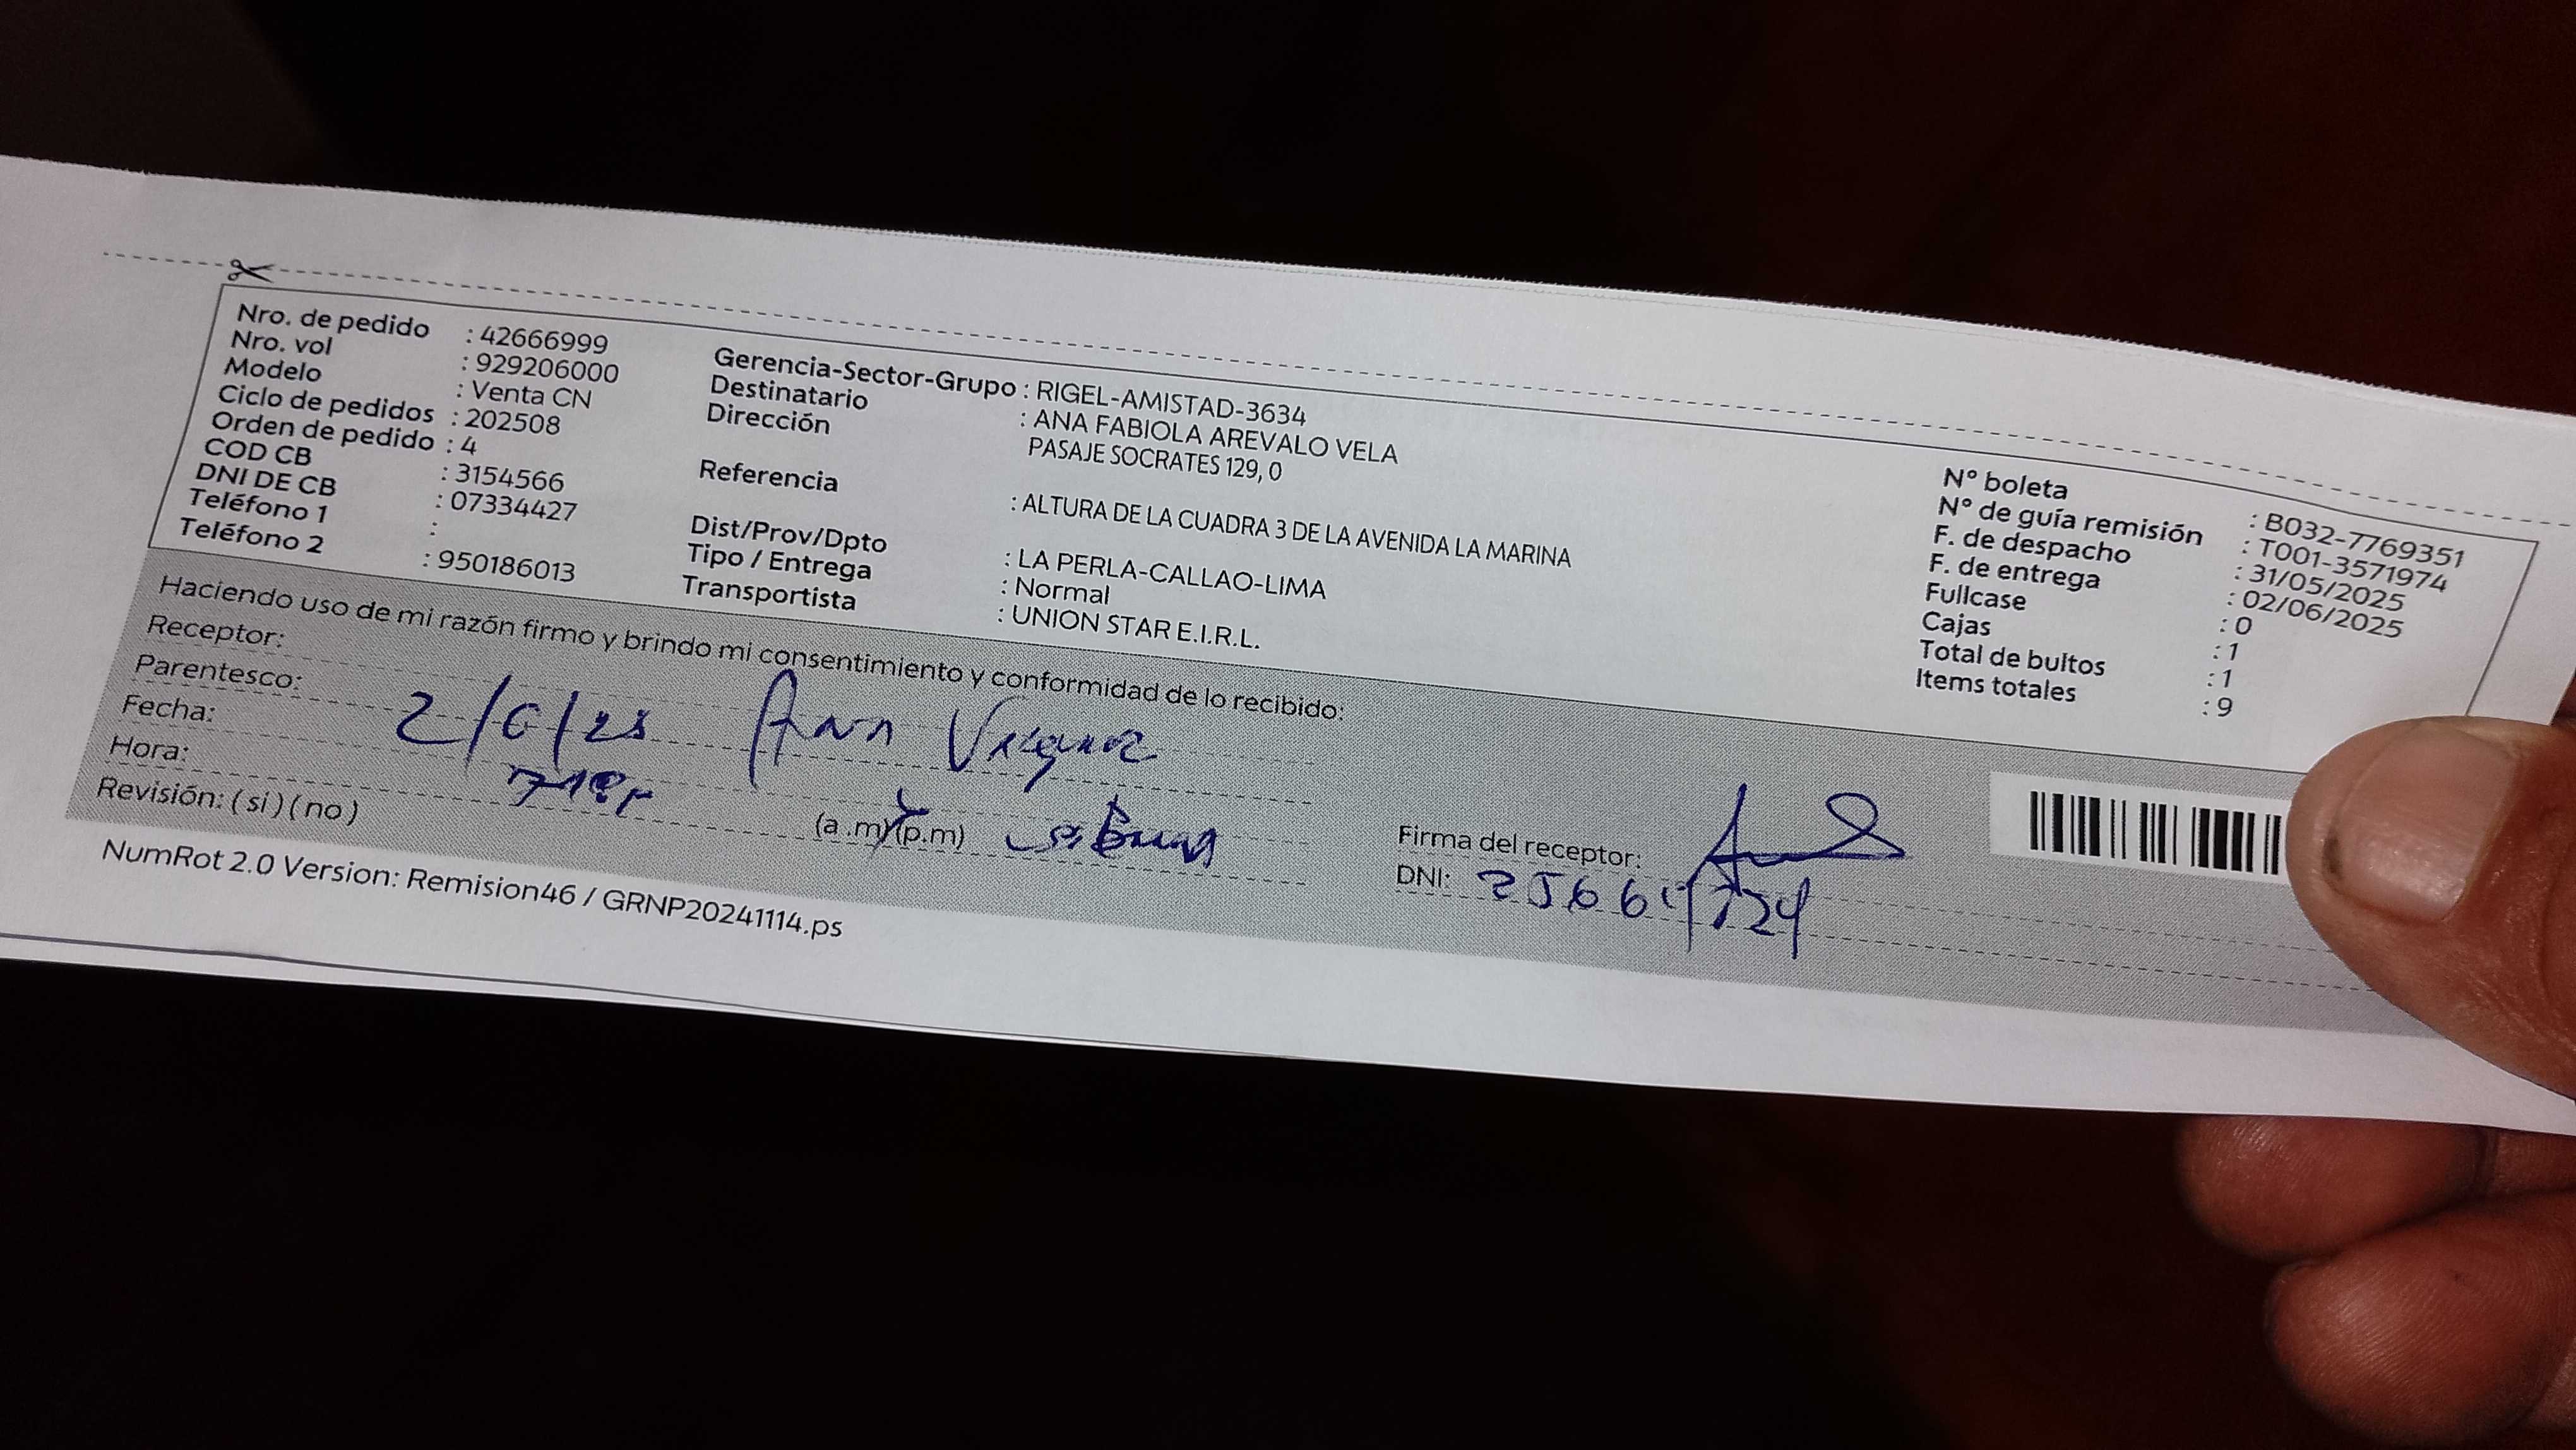 Nro. de pedido : 42666999
Nro. vol : 929206000
Modelo : Venta CN
Ciclo de pedidos : 202508
Orden de pedido : 4
COD CB : 3154566
DNI DE CB : 07334427
Teléfono 1 :
Teléfono 2 : 950186013
Gerencia-Sector-Grupo : RIGEL-AMISTAD-3634
Destinatario : ANA FABIOLA AREVALO VELA
Dirección PASAJE SOCRATES 129, 0
Referencia : ALTURA DE LA CUADRA 3 DE LA AVENIDA LA MARINA
Dist/Prov/Dpto : LA PERLA-CALLAO-LIMA
Tipo / Entrega : Normal
Transportista : UNION STAR E.I.R.L.
N° boleta : B032-7769351
N° de guía remisión : T001-3571974
F. de despacho : 31/05/2025
F. de entrega : 02/06/2025
Fullcase : 0
Cajas : 1
Total de bultos : 1
Items totales : 9
Haciendo uso de mi razón firmo y brindo mi consentimiento y conformidad de lo recibido:
Receptor:
Parentesco:
Fecha: 2/6/25 Ana
Hora:
Revisión: ( si ) ( no ) (a .m) (p.m)
Firma del receptor:
DNI:
NumRot 2.0 Version: Remision46 / GRNP20241114.ps